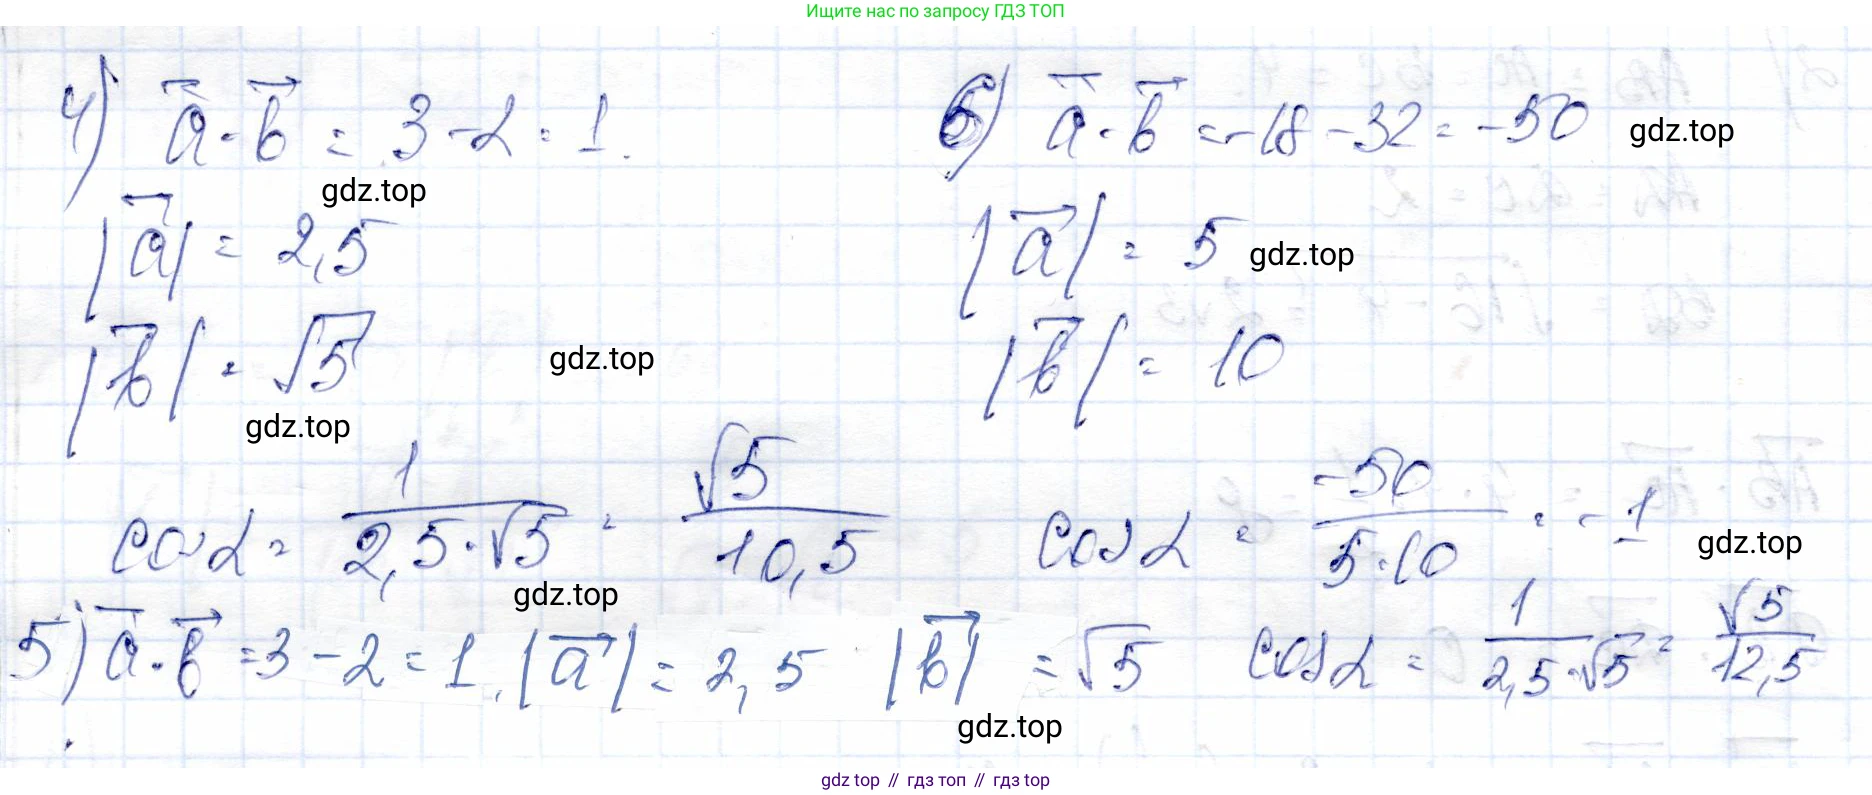 Ищите нас по запросу ГДЗ ТОП
4) a⃗·b⃗ = 3-2=1.
gdz.top
|a⃗| = 2,5
|b⃗| = √5
gdz.top
gdz.top
cosα = 1/(2,5·√5) = √5/10,5
gdz.top
6) a⃗·b⃗ = -18-32 = -50
gdz.top
|a⃗| = 5
gdz.top
|b⃗| = 10
cosα = -50/(5·10) = -1
gdz.top
5) a⃗·b⃗ =3-2=1. |a⃗| = 2,5 |b⃗| = √5 cosα = 1/(2,5·√5) = √5/12,5
gdz.top
gdz top // гдз топ // gdz top